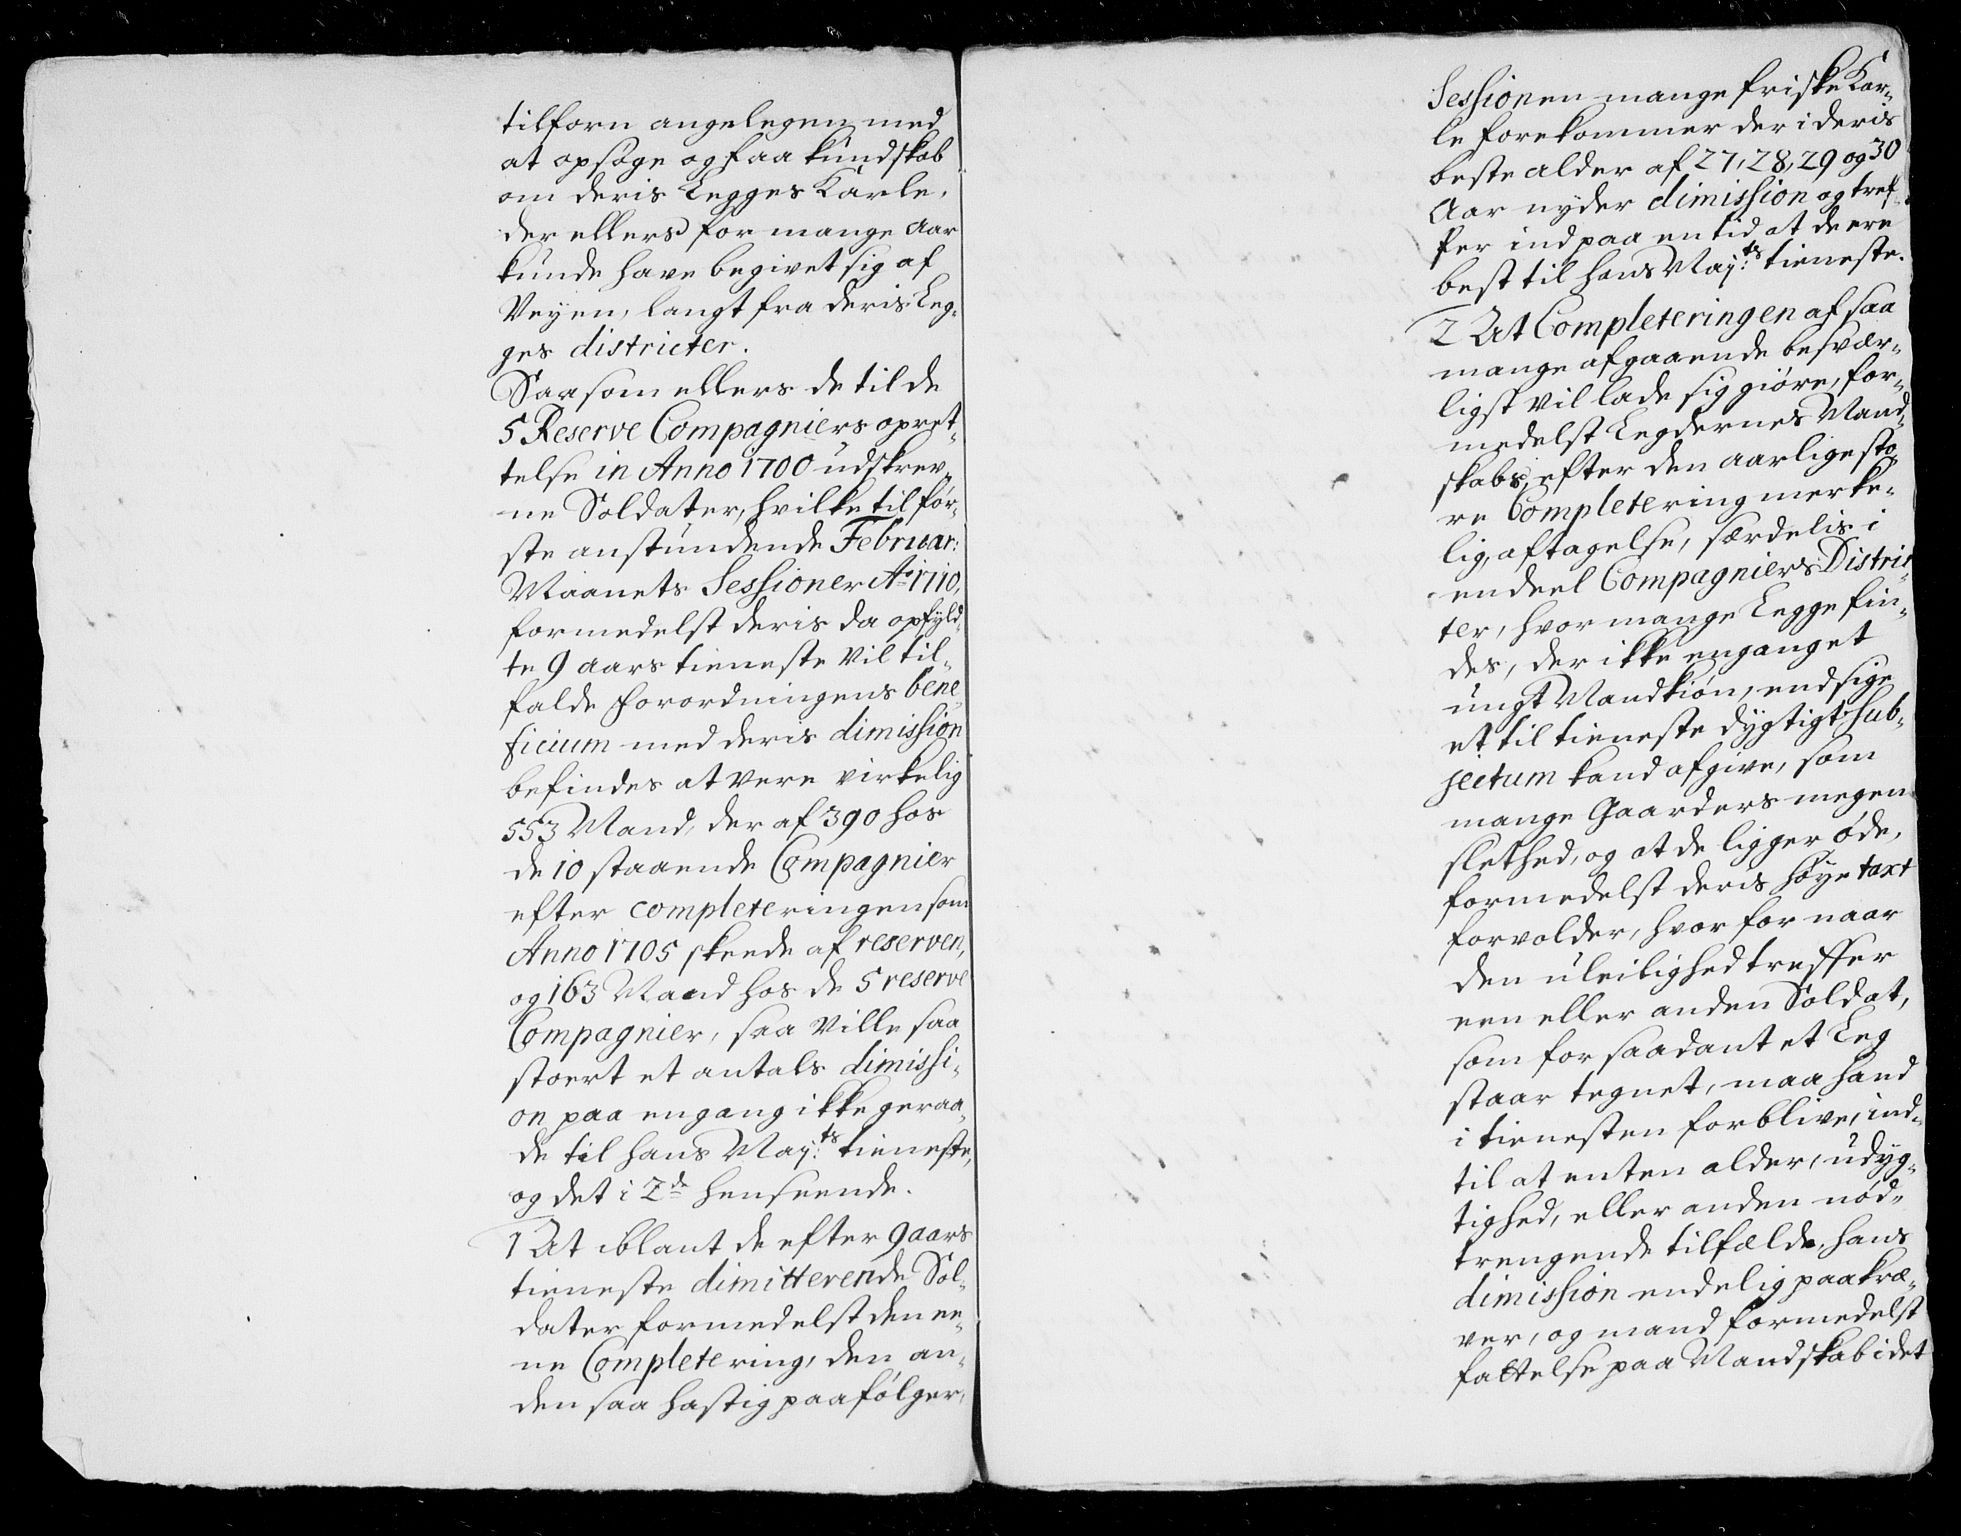 tilforn angelegen med
at opsøge og faa kundskab
om deris Legges Karle,
der ellers for mange Aar
kunde have begivet sig af
Veyen, langt fra deris Leg„
ges districter.
Saasom ellers de til de
5 Reserve Compagniers opret„
telse in Anno 1700 udskrev„
ne Soldater, hvilke til før„
ste anstundende Februar:
Maanets Sessioner Aº 1710,
formedelst deris da opfyld„
te 9 aars tieneste vil til„
falde forordningens bene„
ficium med deris dimission
befindes at vere virkelig
553 Mand, der af 390 hos
de 10 staaende Compagnier
efter completeringen som
Anno 1705 skeede af reserven,
og 163 Mand hos de 5 reserve
Compagnier, saa ville saa
stoert et antals dimissi„
on paa engang ikke geraa„
de til hans May:ts tieneste,
og det i 2de henseende.
1 At iblant de efter 9 aars
tieneste dimitterende Sol„
dater formedelst den ee„
ne Completering, den an„
den saa hastig paafølger,
Sessionen mange friske Kar„
le forekommer der i deris
beste alder af 27, 28, 29 og 30
Aar nyder dimission og tref„
fer ind paa en tid at de ere
best til hans May:ts tieneste.
2 At Completeringen af saa
mange afgaaende besvær„
ligst vil lade sig giøre, for„
medelst Legdernes Mand„
skabs, efter den aarlige sto„
re Completering merke„
lig, aftagelse, særdelis i
endeel Compagniers Distric„
ter, hvor mange Legge fin„
des, der ikke enganget
ungt Mandkiøn, endsige
et til tieneste dygtigt Sub„
jectum kand afgive, som
mange Gaarders megen
slethed, og at de ligger øde,
formedelst deris høye taxt
forvolder, hvor for naar
den uleilighed treffer
een eller anden Soldat,
som for saadant et Leg
staar tegnet, maa hand
i tienesten forblive, ind„
til at enten alder, udyg„
tighed, eller anden nød„
trengende tilfælde, hans
dimission endelig paakræ„
ver, og mand formedelst
fattelse paa Mandskab i det